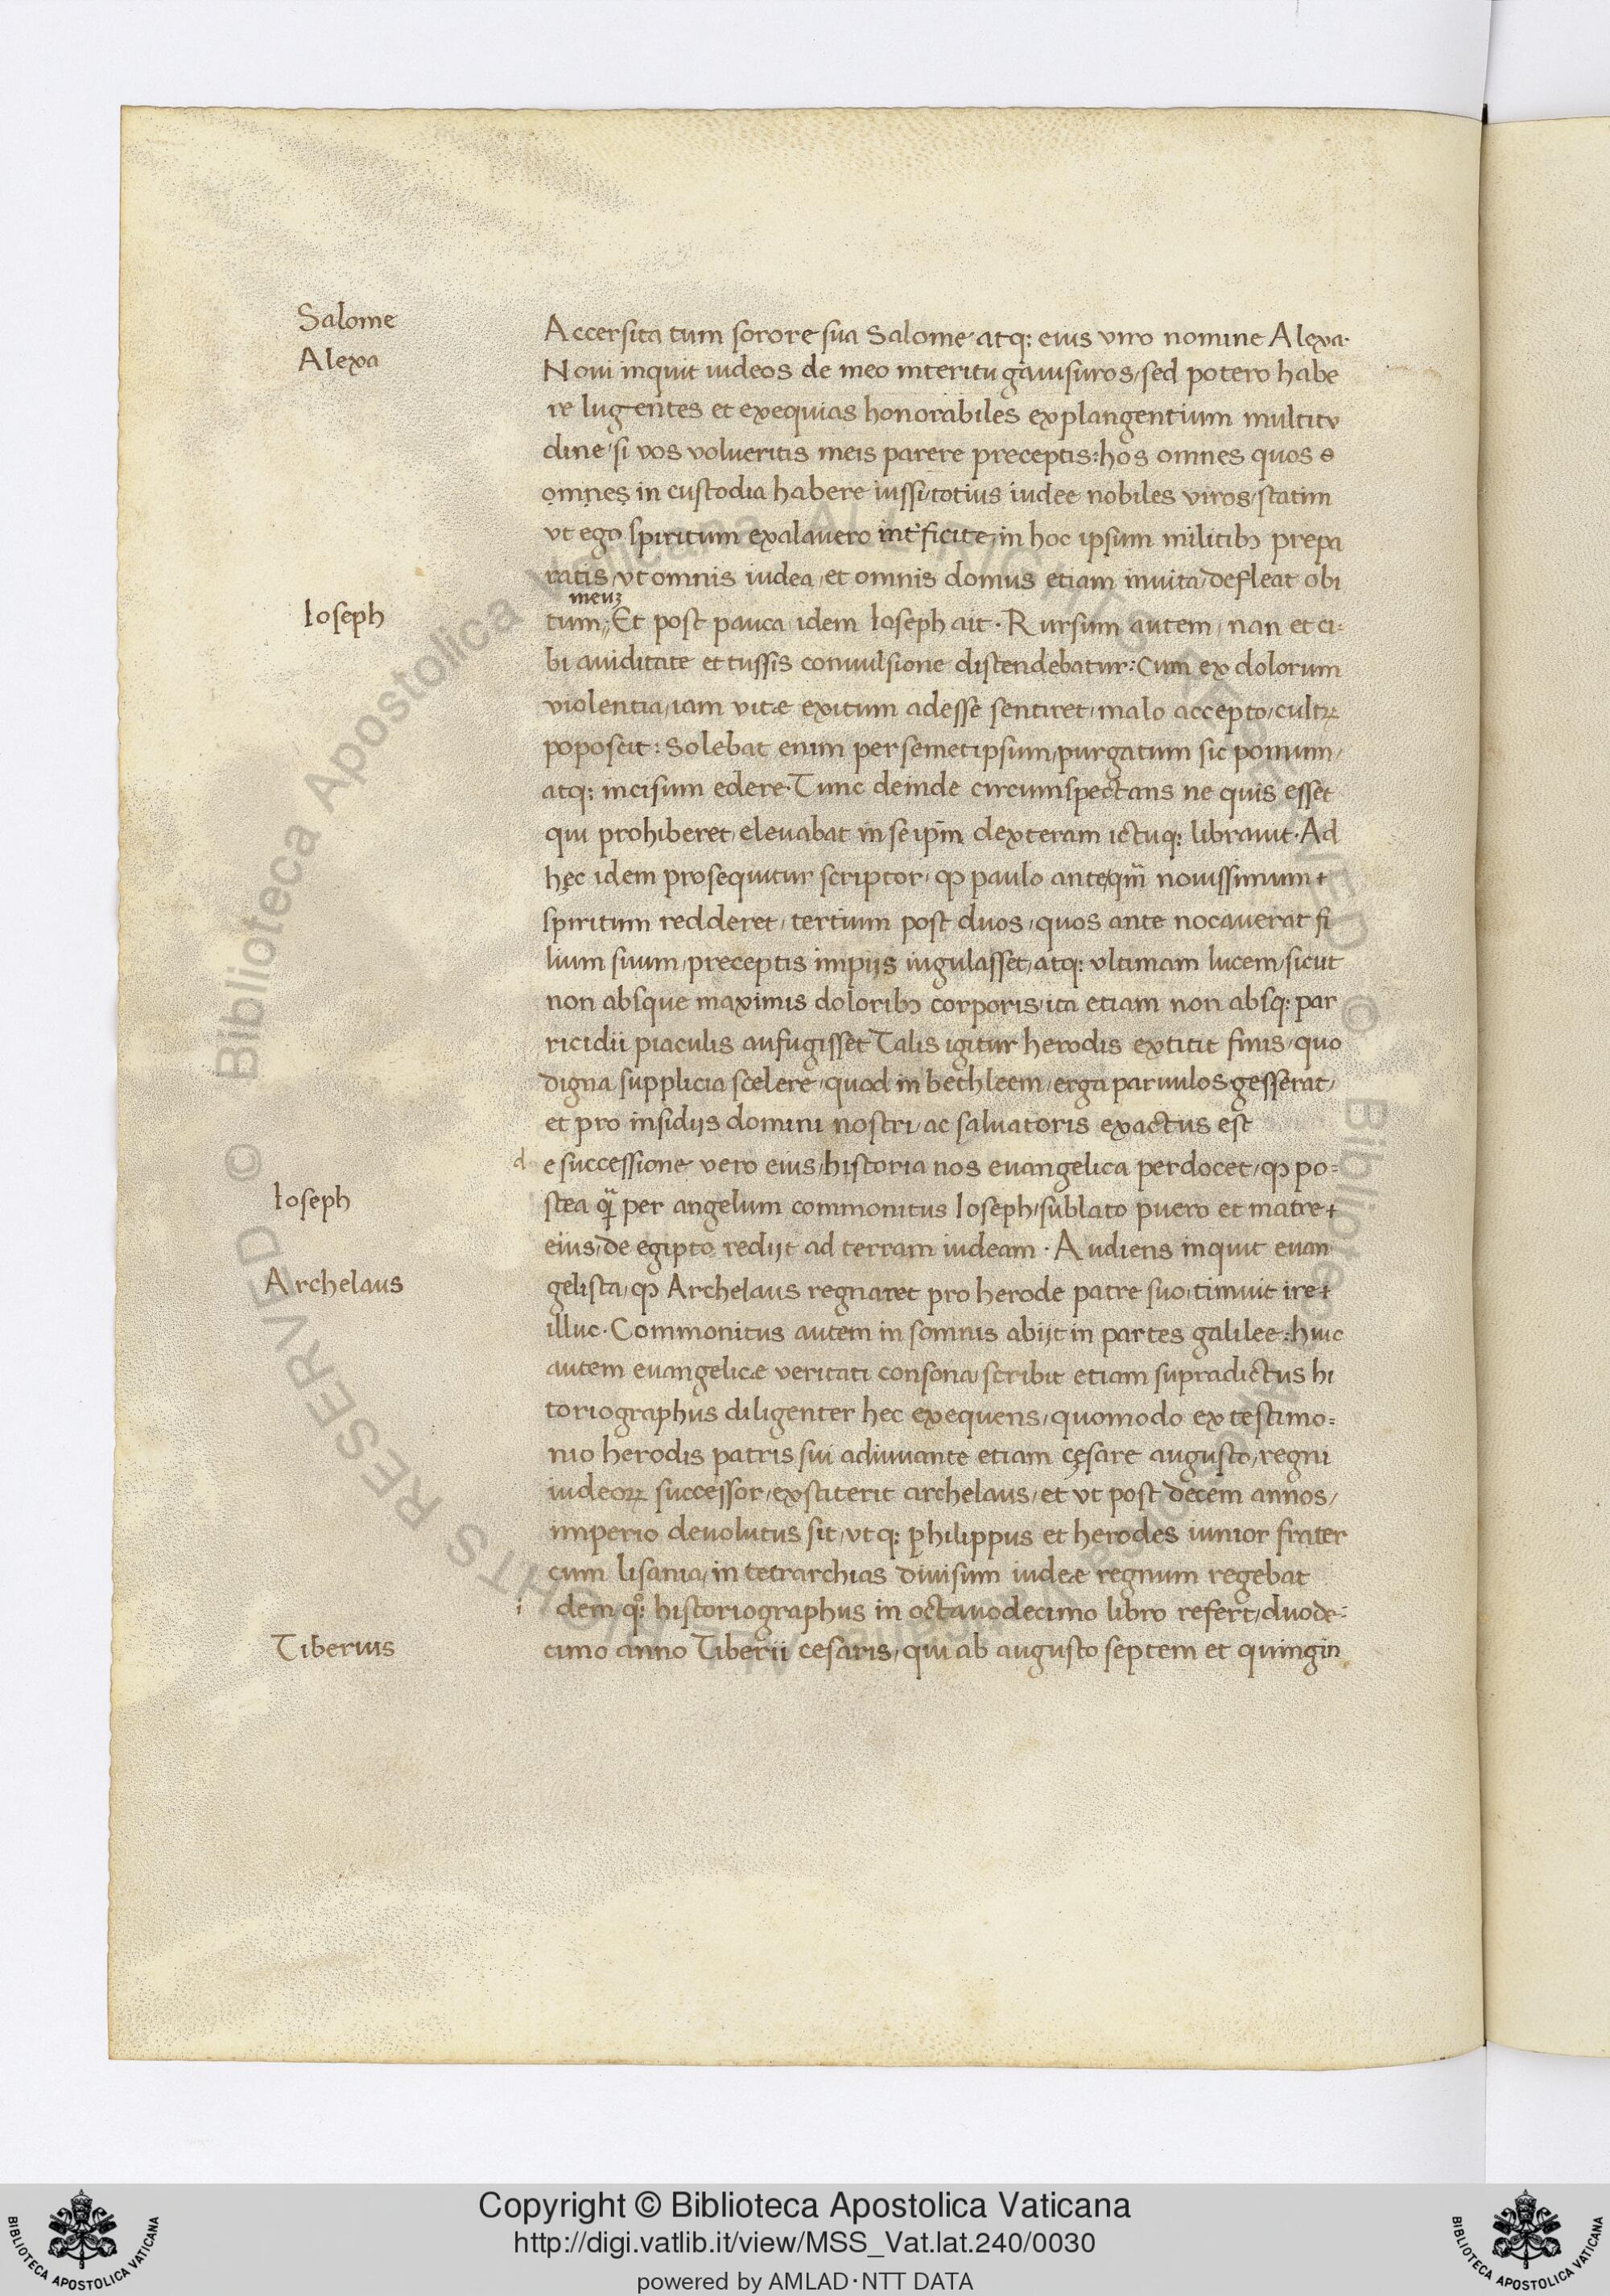 Salome
Alexa
Accersita tum sorore sua Salome atq: eius viro nomine Alexa·
Noui inquit iudeos de meo interitu gauisuros, sed potero habe
re lugentes et exequias honorabiles explangentium multitu
dine, si vos volueritis meis parere preceptis: hos omnes quos
omnes in custodia habere iussi, totius iudee nobiles viros, statim
vt ego spiritum exalauero int'ficite, in hoc ipsum militibꝫ prepa
ratis, vt omnis iudea, et omnis domus etiam inuita, defleat obi
meuꝫ
Ioseph
tum,, Et post pauca idem Ioseph ait · Rursum autem, nan et ci=
bi auiditate et tussis conuulsione distendebatur: Cum ex dolorum
violentia, iam vitæ exitum adesse sentiret, malo accepto, cultꝝ
poposcit: Solebat enim per semetipsum, purgatum sic pomum,
atq: incisum edere· Tunc deinde circumspectans ne quis esset
qui prohiberet, eleuabat in se ip̄m dexteram ictuq: librauit· Ad
hęc idem prosequitur scriptor, ꝙ paulo ante, qm̄ nouissimum
spiritum redderet, tertium post duos, quos ante nocauerat fi
lium suum, preceptis impijs iugulasset, atq: vltimam lucem, sicut
non absque maximis doloribꝫ corporis, ita etiam non absq: par
ricidii piaculis aufugisset Talis igitur herodis extitit finis, quo
digna supplicia scelere, quod in bethleem, erga paruulos gesserat,
et pro insidijs domini nostri, ac saluatoris exactus est
d e successione vero eius, historia nos euangelica perdocet, ꝙ po=
Ioseph
stea q̄ per angelum commonitus Ioseph, sublato puero et matre
eius, de egipto redijt ad terram iudeam · Audiens inquit euan
Archelaus
gelista, ꝙ Archelaus regnaret pro herode patre suo, timuit ire
illuc· Commonitus autem in somnis abijt in partes galilee: huic
autem euangelicæ veritati consona, scribit etiam supradictus hi
toriographus diligenter hec exequens, quomodo ex testimo=
nio herodis patris sui adiuuante etiam cęsare augusto, regni
iudeoꝝ successor, exstiterit archelaus, et vt post decem annos,
imperio deuolutus sit, vt q: philippus et herodes iunior frater
cum lisania, in tetrarchias diuisum iudeæ regnum regebat
i dem qͦ: historiographus in octauodecimo libro refert, duode=
Tiberius
cimo anno Tiberii cesaris, qui ab augusto septem et quingin
Copyright © Biblioteca Apostolica Vaticana
http://digi.vatlib.it/view/MSS_Vat.lat.240/0030
powered by AMLAD·NTT DATA
BIBLIOTECA APOSTOLICA VATICANA
BIBLIOTECA APOSTOLICA VATICANA
© Biblioteca Apostolica Vaticana ALL RIGHTS RESERVED © Biblioteca Apostolica Vaticana ALL RIGHTS RESERVED